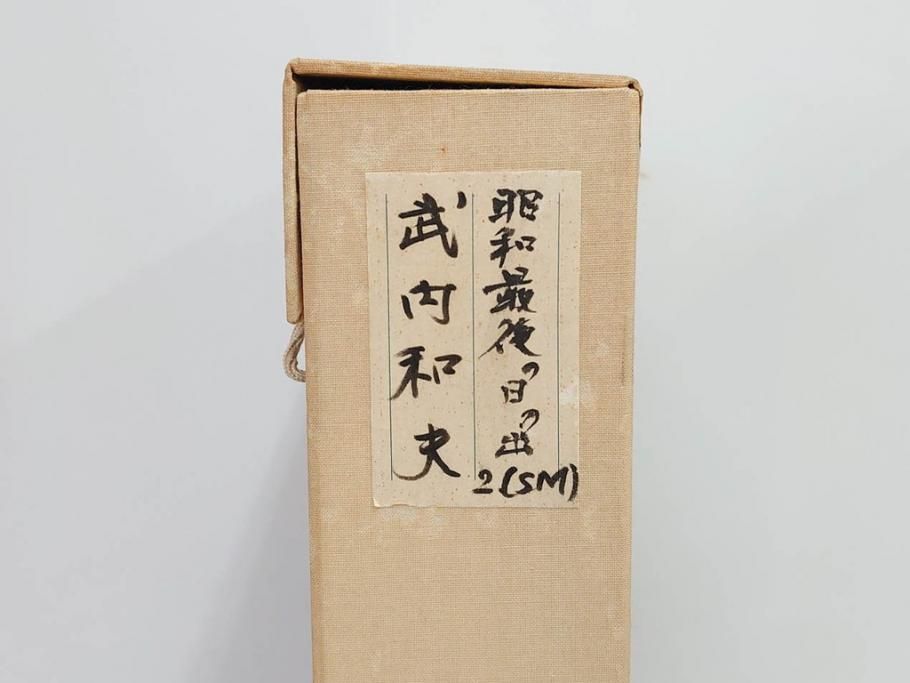 昭和最後の日の出
2(SM)
武内和夫